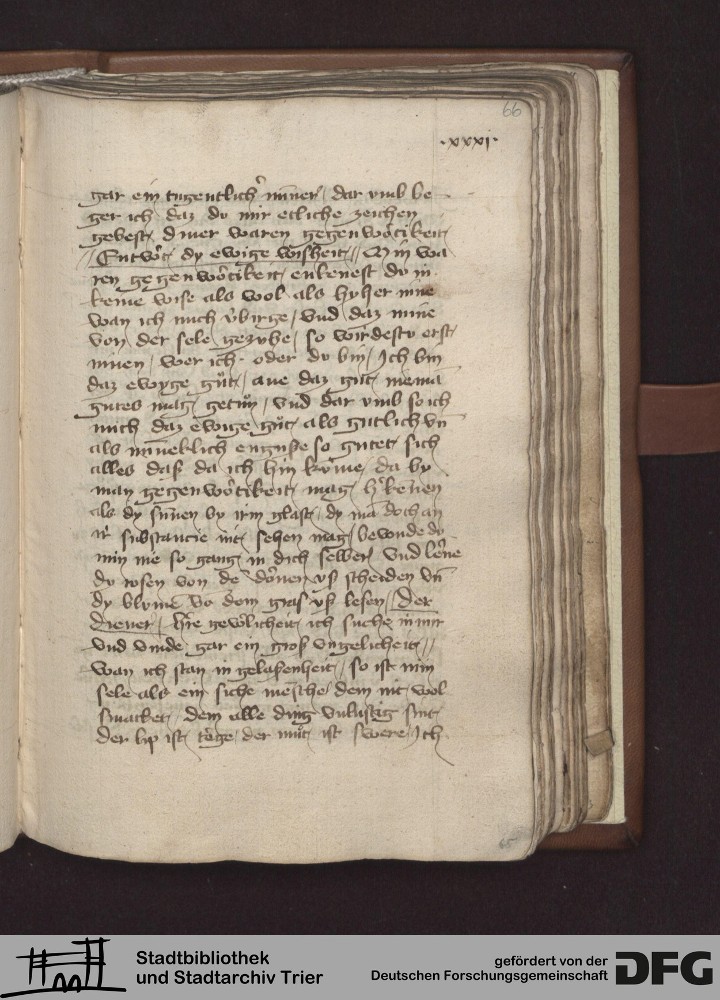 66
·xxxi·
gar ein tugentlich' minner / dar vmb be
ger ich daz do mir etliche zeichen
gebest / diner waren gegenwo'tikeit /
Entwo't / dy ewige wisheit // Min wa
ren gegenwo'tikeit / enkenest do in
keine wise als wol als hyher inne
wan ich mich v'birge / vnd daz mine
von der sele gezyhe / so wirdestu erst
innen / wer ich oder do bin / Ich bin
daz ewyge gůt / ane daz gůt niema
gutes mag / getůn / vnd dar vmb so ich
mich daz ewige gůt / als gutlich vn̄
als mineklich engusse so gutet sich
alles das da ich hin kome / da by
man gegenwo'tikeit mag kenen
als dy sunnen by irm glast / dy ma doch an
ir substancie nit sehen mag / bevonde do
min ie so gang in dich selber vnd lerne
dy rosen von de dornen vß scheiden vn̄
dy blome vo dem graß vß lesen / Der
diener / Here gewo'lichen ich suche in mir
vnd vinde gar ein groß vngelicheit //
wan ich stan in gelassenheit / so ist min
sele als ein siche mesche dem nit wol
smacket / dem alle ding vnlustig sint
der lip ist trege / der můt ist swere / Ich
65
Stadtbibliothek
und Stadtarchiv Trier
gefördert von der
Deutschen Forschungsgemeinschaft
DFG